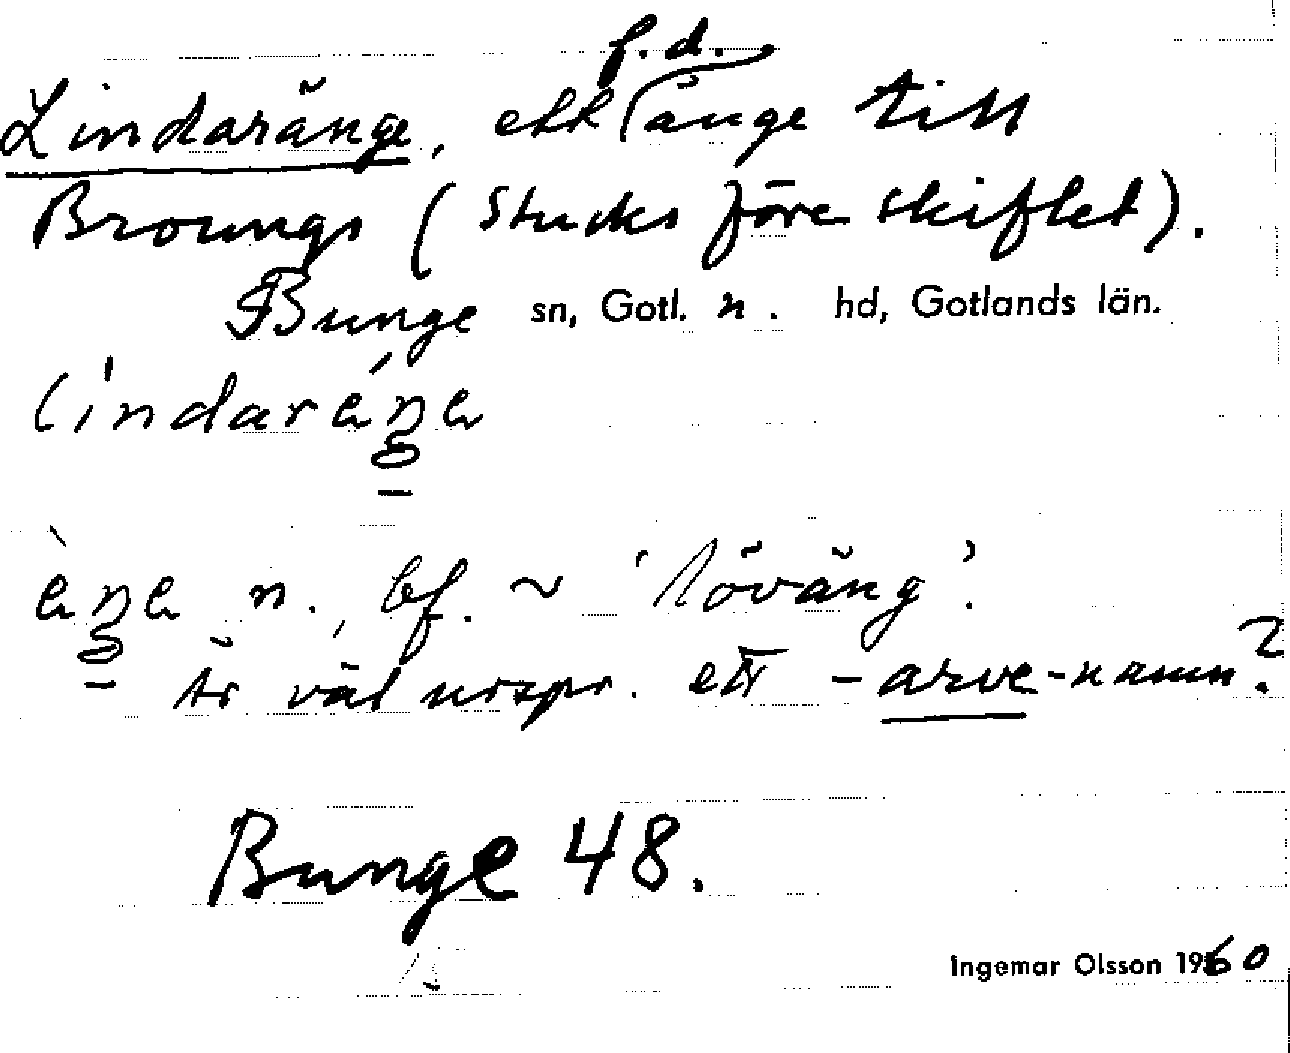 Lindaränge, ett f.d. änge till
Broungs (Stucks före skiftet).
Bunge sn, Gotl. n. hd, Gotlands län.
n. bf. ~ 'löväng'.
Är väl urspr. ett -arve-namn?
Bunge 48.
Ingemar Olsson 1960